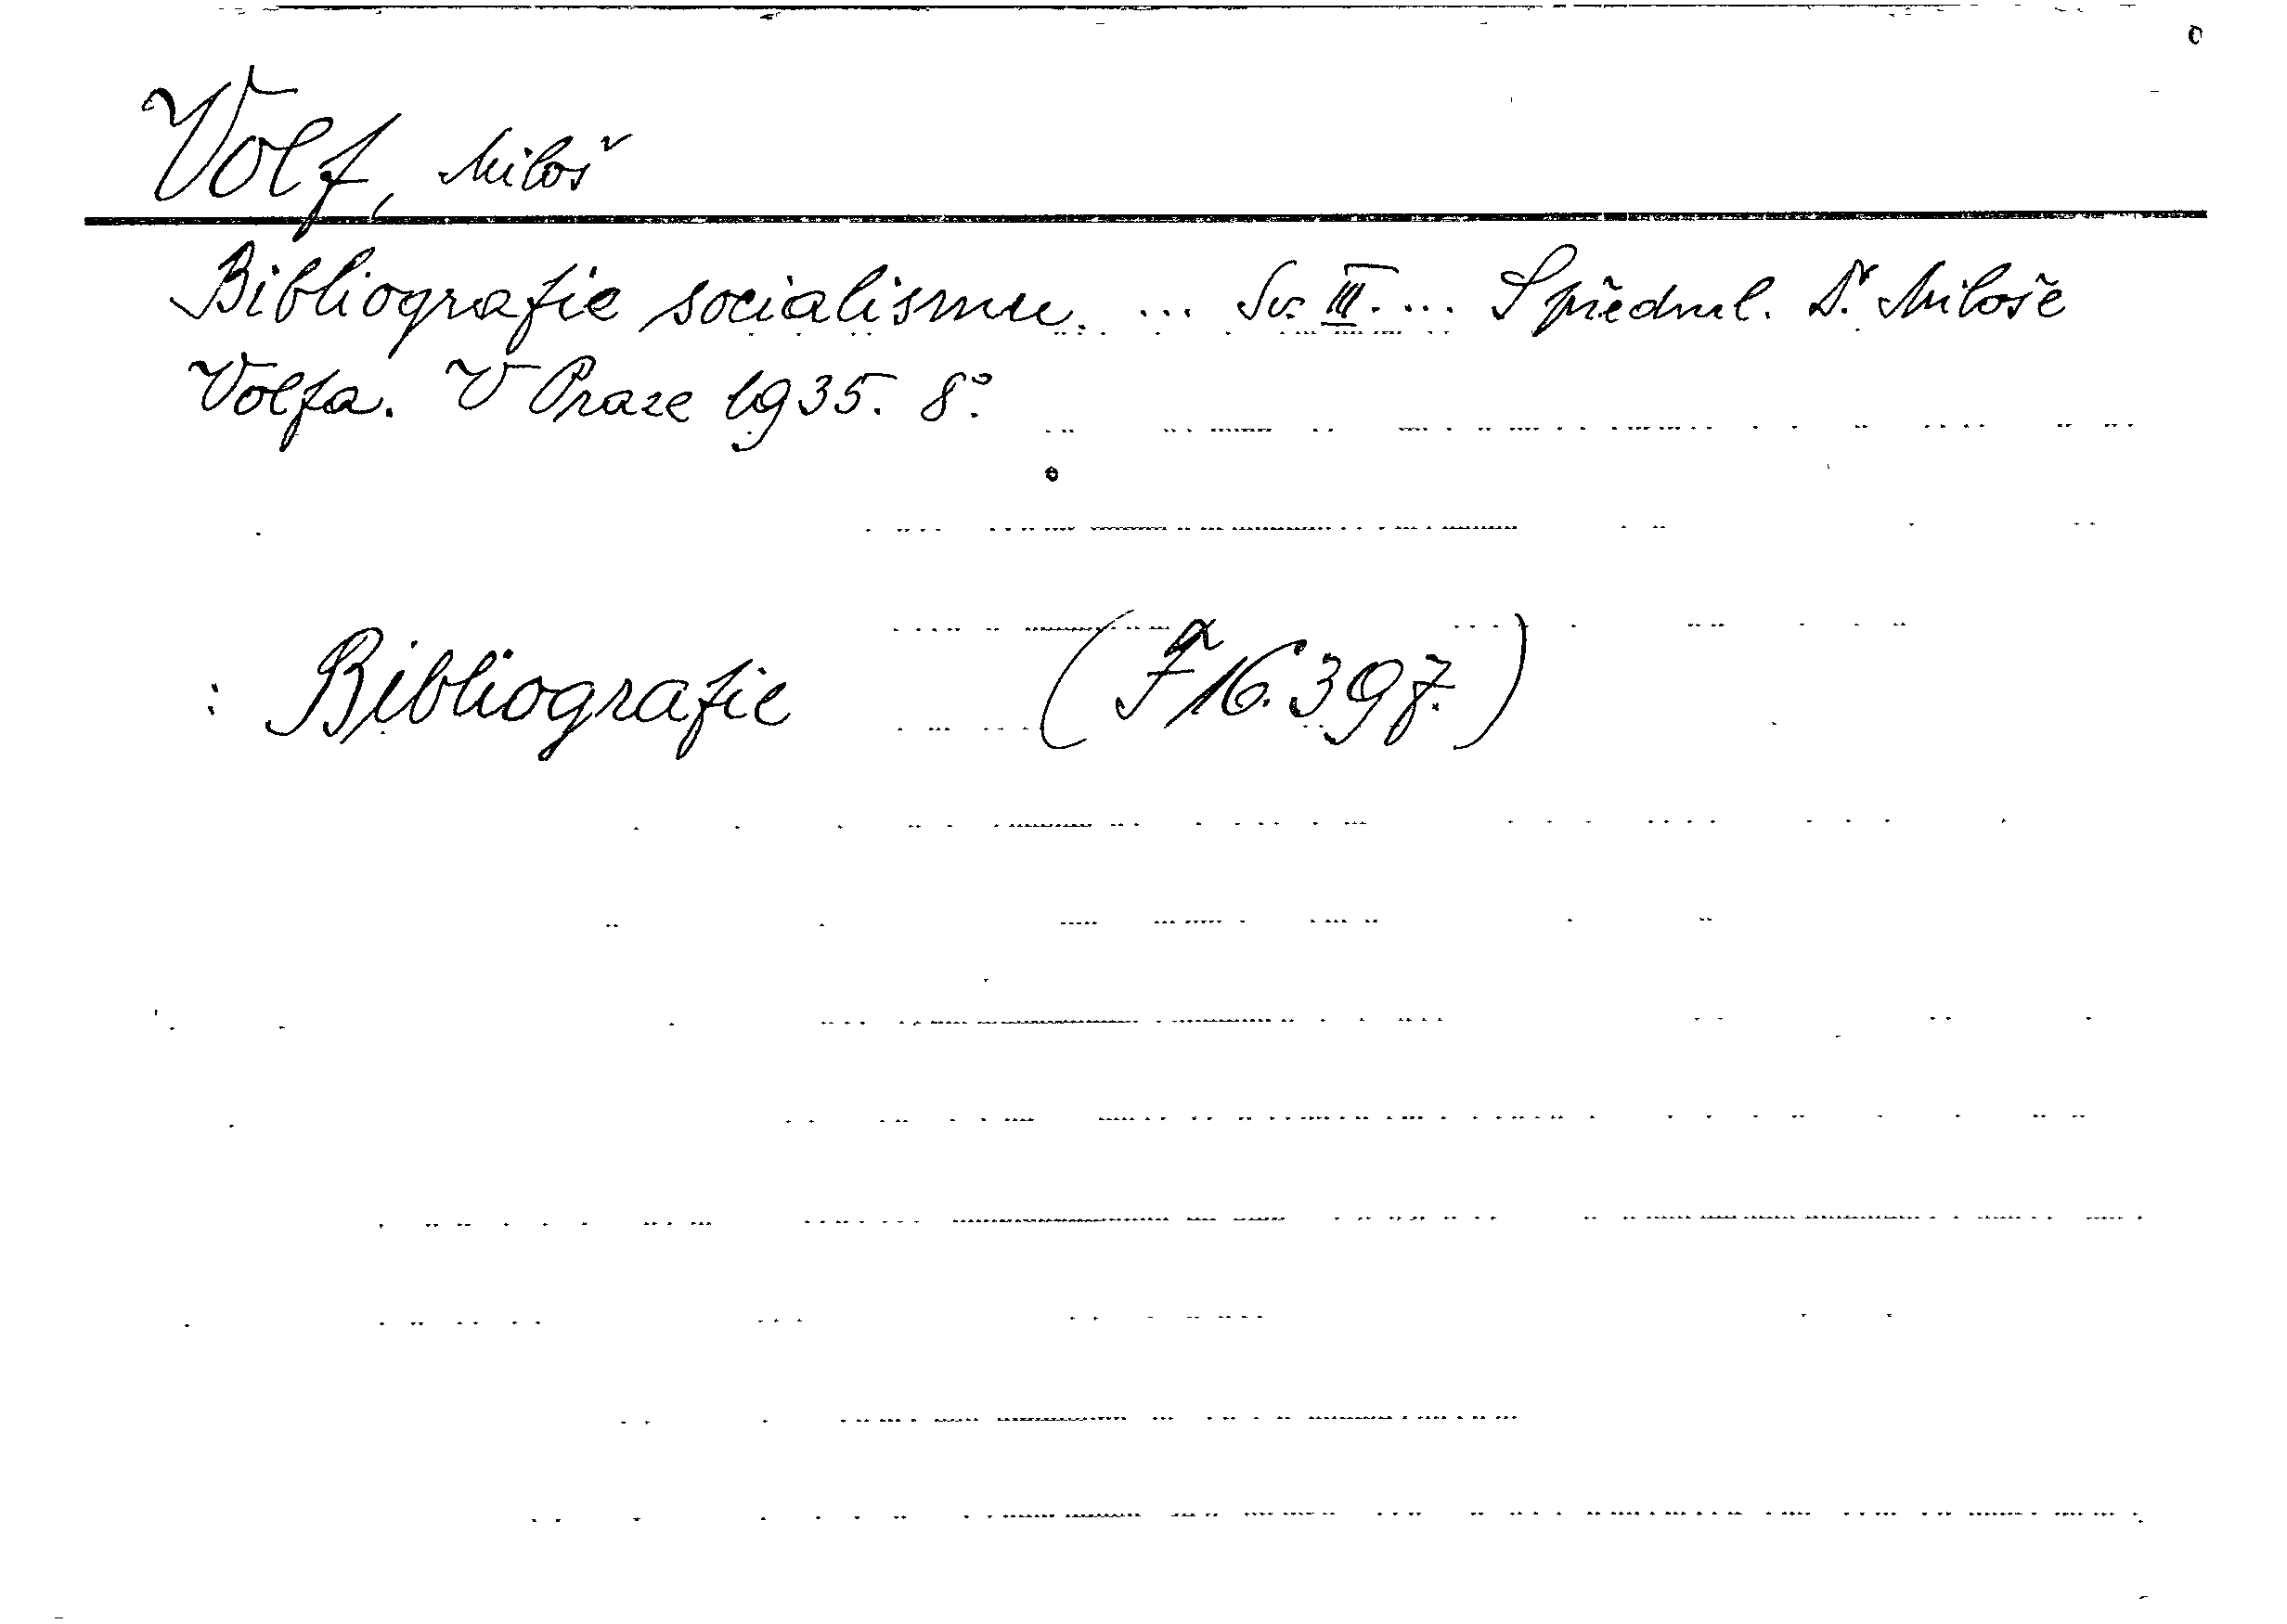 Volf, Miloš
Bibliografie socialismu. ... Sv. III. ... S předml. Dr. Miloše
Volfa. V Praze 1935. 8°.
: Bibliografie (F 16.397.)